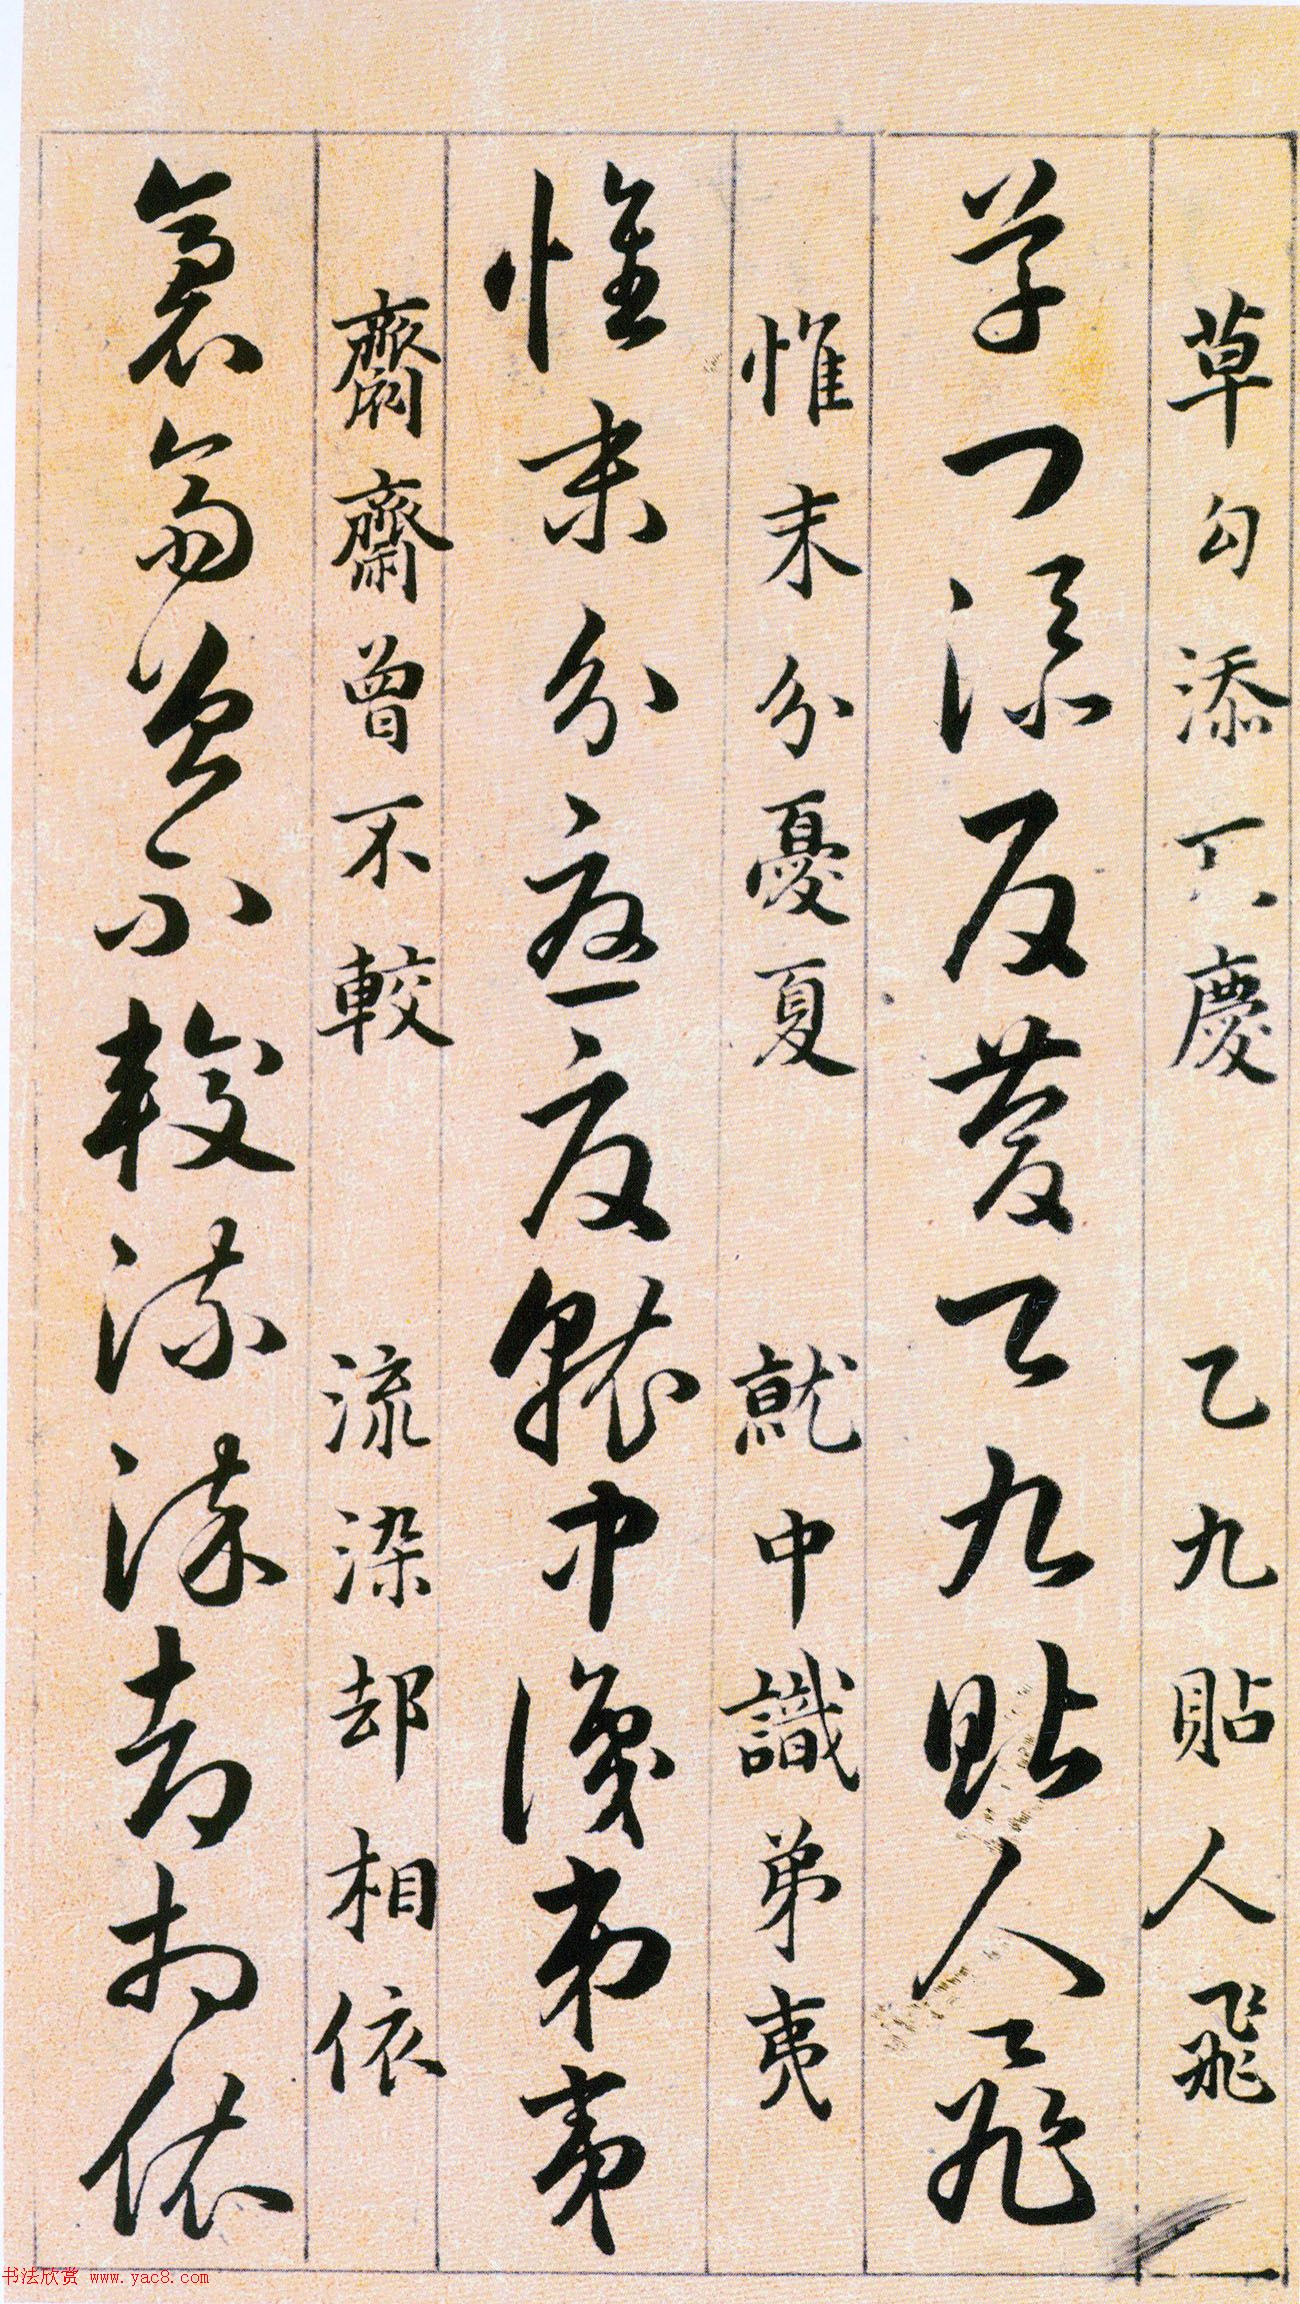 草勾添慶 乙九貼人飛
草勾添慶乙九貼人飛
惟末分憂夏 就中識弟夷
惟末分憂夏就中識弟夷
齎齋曾不較 流染却相依
齎齋曾不較流染却相依
书法欣赏 www.yac8.com